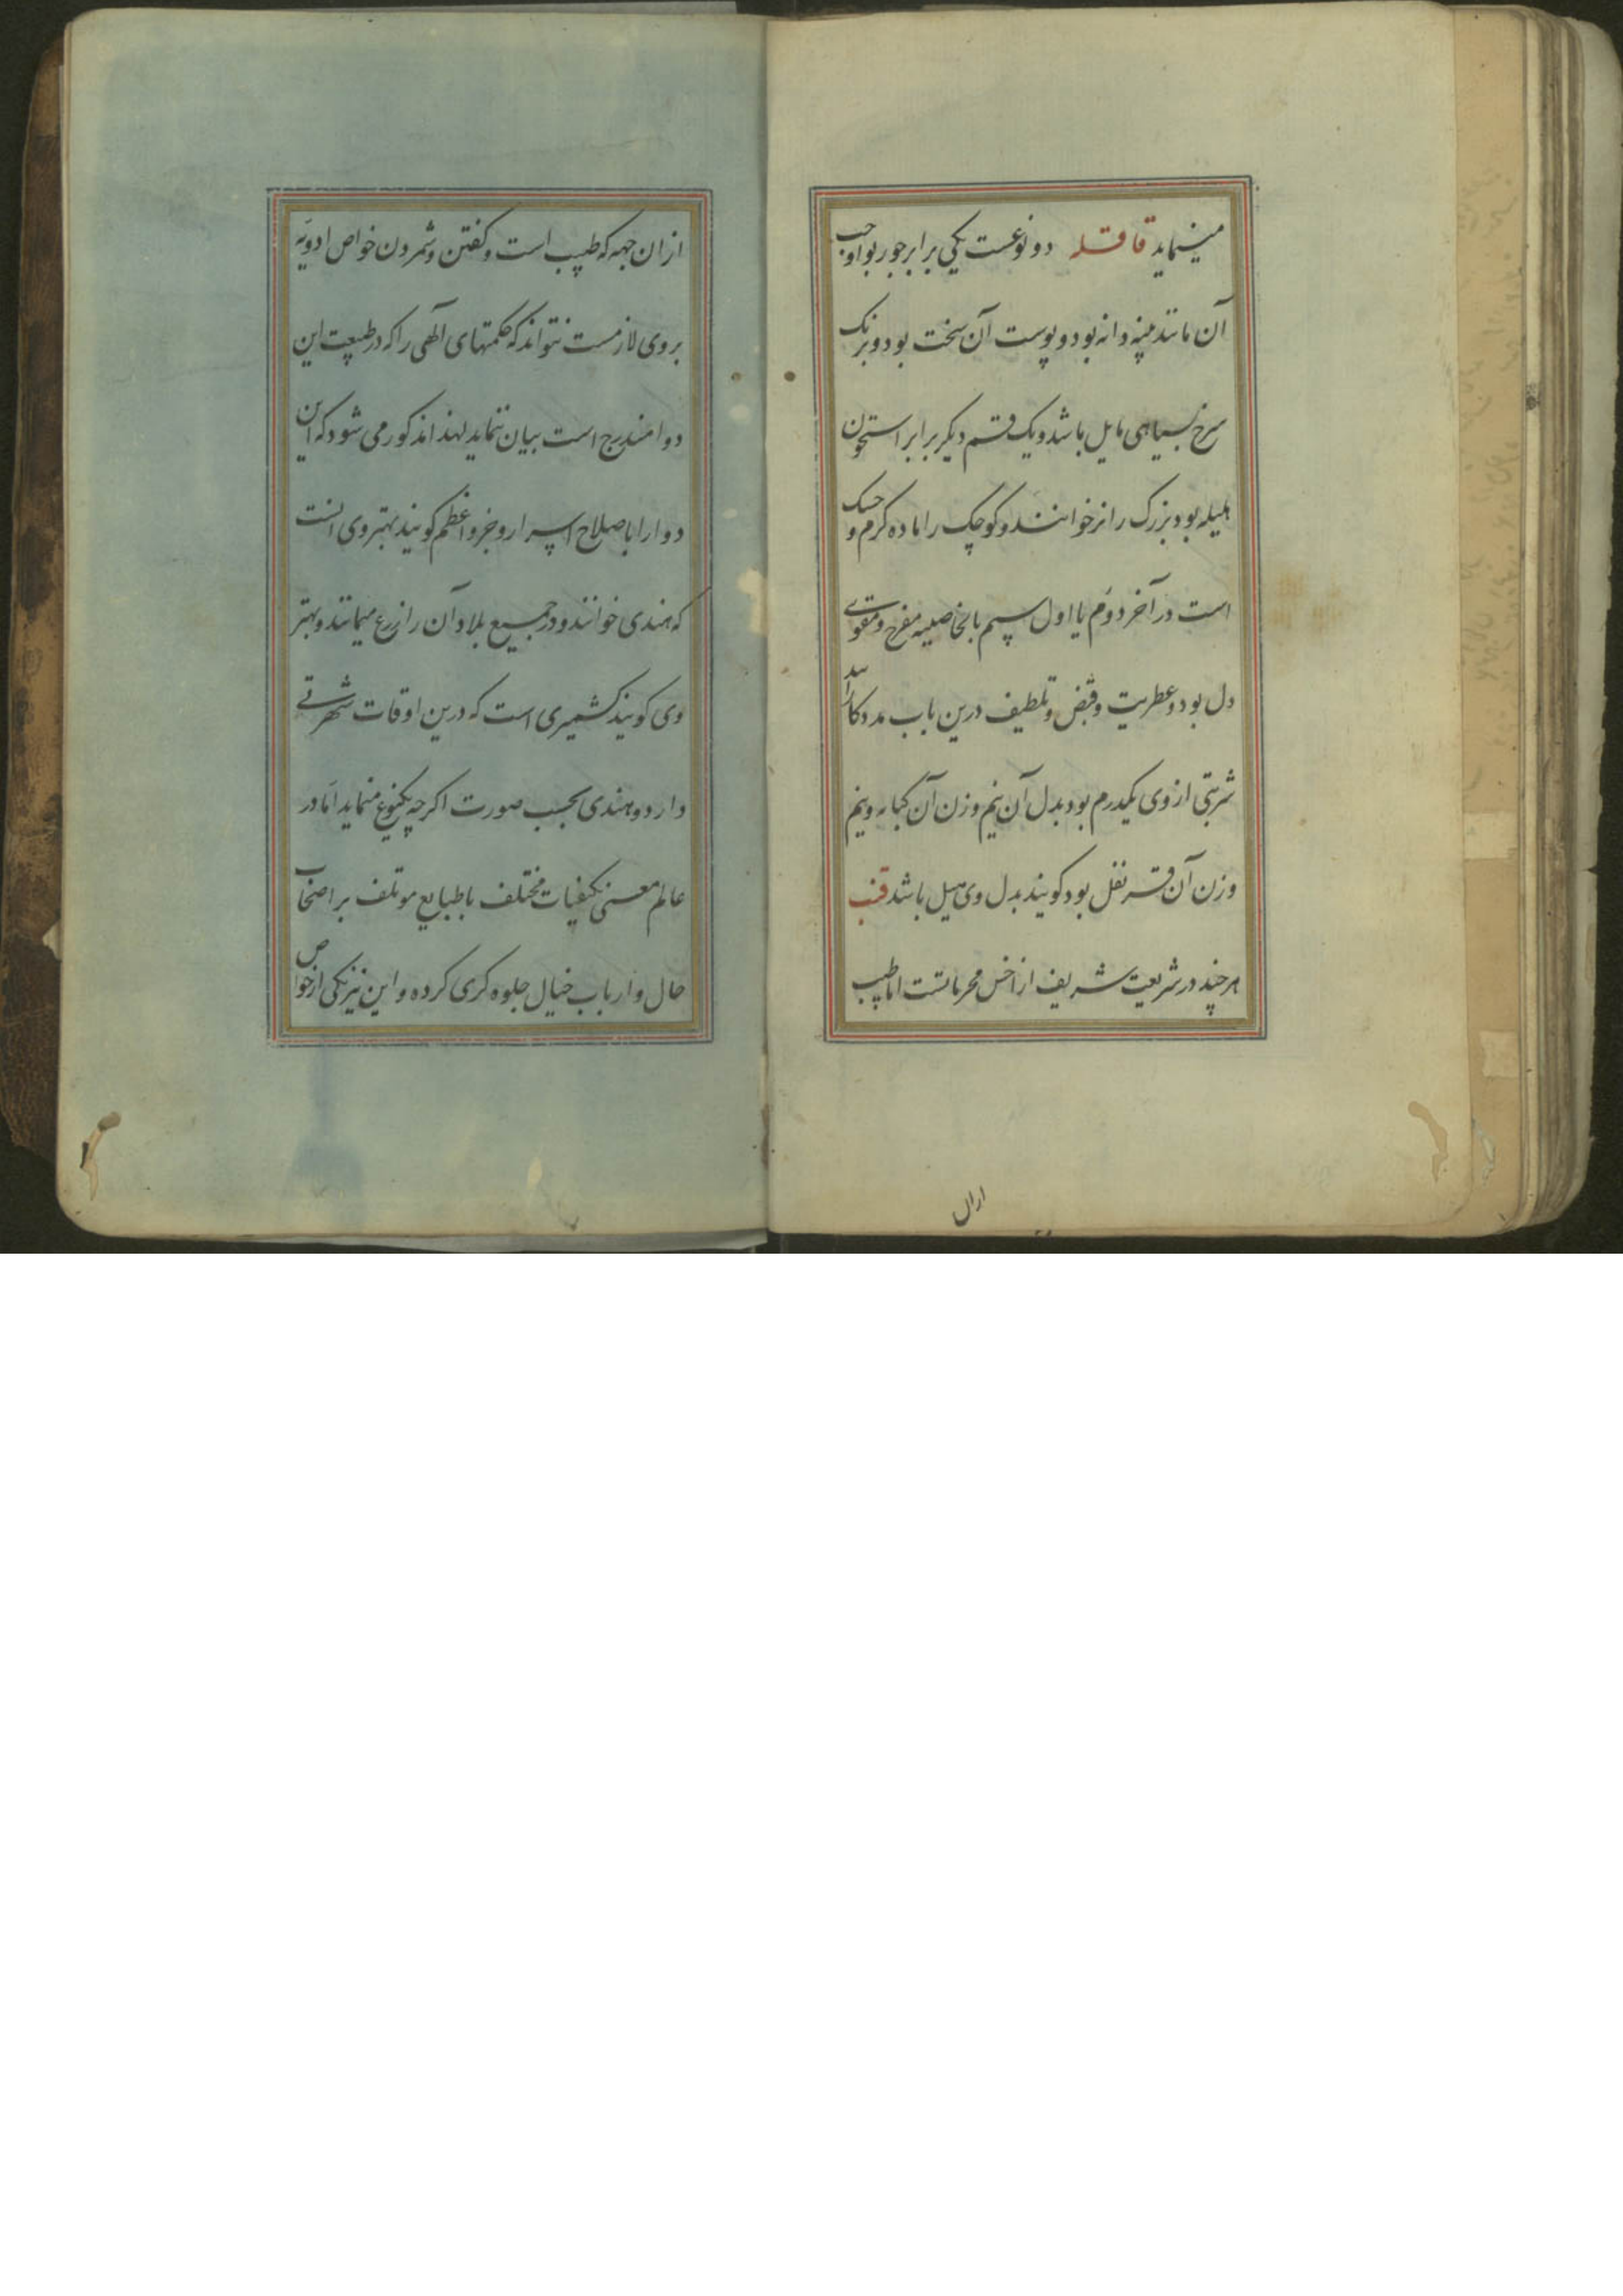 مینماید قاقله دو نوعست یکی برابر جوز بوا و حب
آن مانند پنبه دانه بود و پوست آن سخت بود و برنک
سرخ بسیاهی مایل باشد و یک قسم دیکر برابر استخوان
هلیله بود بزرک را نر خوانند و کوچک را ماده کرم و خشک
است در آخر دوم یا اول سیم بالخاصیه مفرح و مقوی
دل بود و عطریت و قبض و تلطیف درین باب مددکار اند
شربتی از وی یکدرم بود بدل آن نیم وزن آن کبابه و نیم
وزن آن قرنفل بود کویند بدل وی هیل باشد قنب
هر چند در شریعت شریف از اخس محرماتست اما طبیب
ازان
ازان جهه که طبیب است و کفتن و شمردن خواص ادویه
بروی لازمست نتواند که حکمتهای آلهی را که در طبیعت این
دوا مندرج است بیان ننماید لهذا مذکور می شود که این
دوا را باصلاح اسرار و جزو اعظم کویند بهترو ی انست
که هندی خوانند و در جمیع بلاد آن را زرع مینمانند و بهتر
وی کویند کشمیری است که درین اوقات شهرتی
دارد و هندی بحسب صورت اکرچه یکنوع مینماید اما در
عالم معنی بکیفیات مختلف با طبایع موتلف بر اصحاب
حال و ارباب خیال جلوه کری کرده و این نیرنکی از خواص